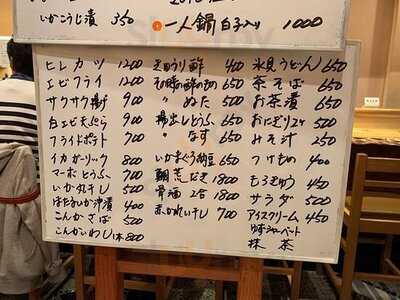 いかこうじ漬 350
一人鍋 白子入り 1000
ヒレカツ 1200
エビフライ 1200
サクサク揚げ 900
白エビ天ぷら 900
フライドポテト 700
イカガーリック 800
マーボとうふ 700
いか丸干し 500
ほたるいか沖漬 400
こんかさば 500
こんかいわし 1本 800
きゅうり酢 400
その時の酢のもの 650
〃 ぬた 500
揚出しとうふ 650
〃 なす 650
いかまぐろ納豆 650
鯛荒だき 1800
骨酒 2合 1800
赤かれい干し 700
氷見うどん 650
茶そば 650
お茶漬 650
おにぎり2ケ 500
みそ汁 250
つけもの 400
もろきゅう 450
サラダ 500
アイスクリーム 450
ゆずシャーベット
抹茶